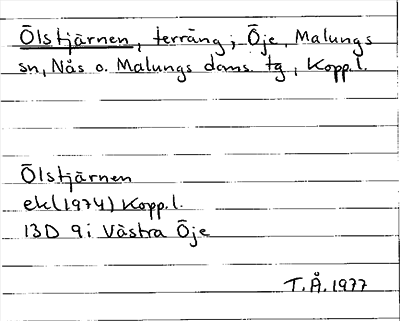 Ölstjärnen, terräng; Öje, Malungs
sn, Nås o. Malungs doms. tg, Kopp.l.
Ölstjärnen
ek(1974) Kopp.l.
13D 9i Västra Öje
T.Å.1977